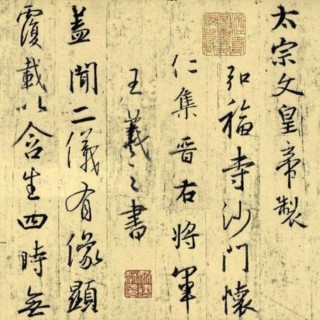 太宗文皇帝製
弘福寺沙門懷
仁集晉右將軍
王羲之書
蓋聞二儀有像顯
覆載以含生四時無